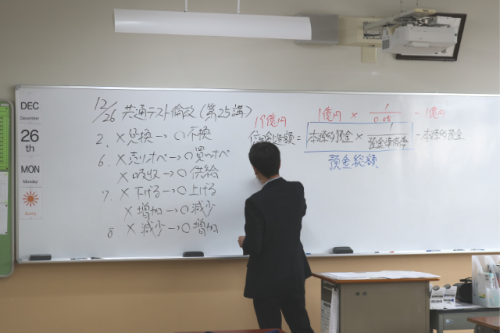 DEC
December
26
th
MON
Monday
12/26 共通テスト倫政(第25講)
2. ×兌換→○不換
6. ×売りオペ→○買いオペ
×吸収→○供給
7. ×下げる→○上げる
×増加→○減少
8. ×減少→○増加
19億円 1億円 × 1/0.05 - 1億円
信用創造額 = 本源的預金 × 1/預金準備率 - 本源的預金
預金総額